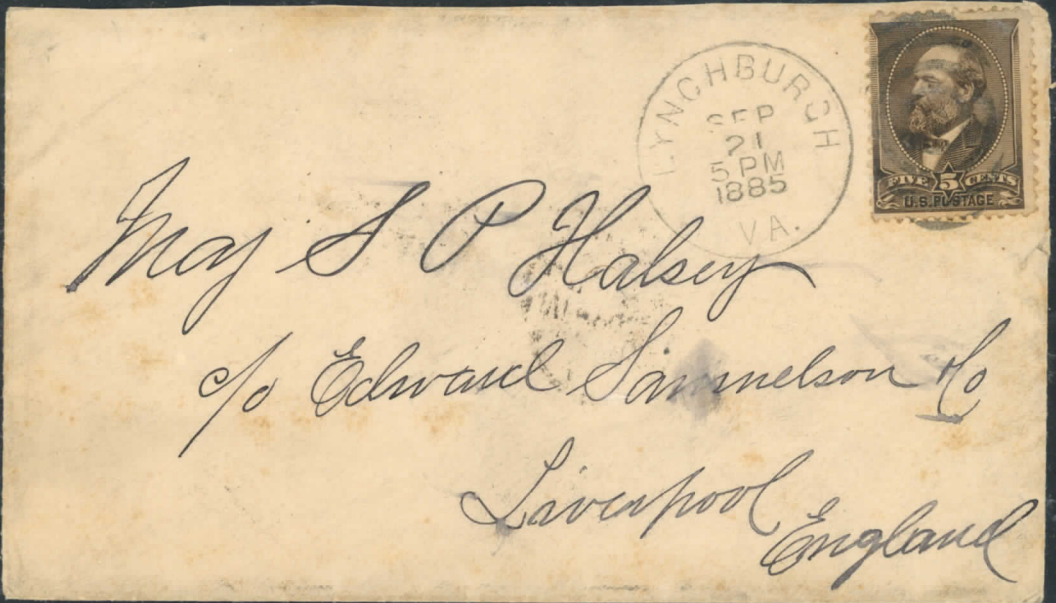 LYNCHBURGH
SEP
21
5 PM
1885
VA.
FIVE 5 CENTS
U.S. POSTAGE
Maj S P Halsey
c/o Edward Samuelson & Co
Liverpool
England